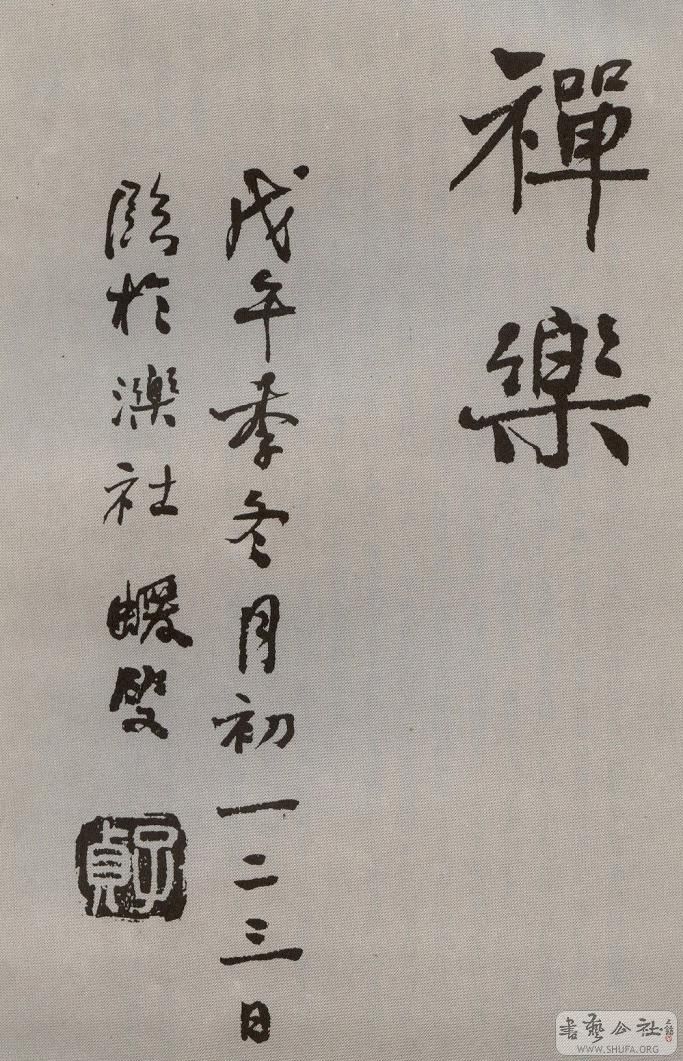 禪樂
戊午季冬月初一二三日
臨於濼社蝯叟
子貞
書藝公社
WWW.SHUFA.ORG